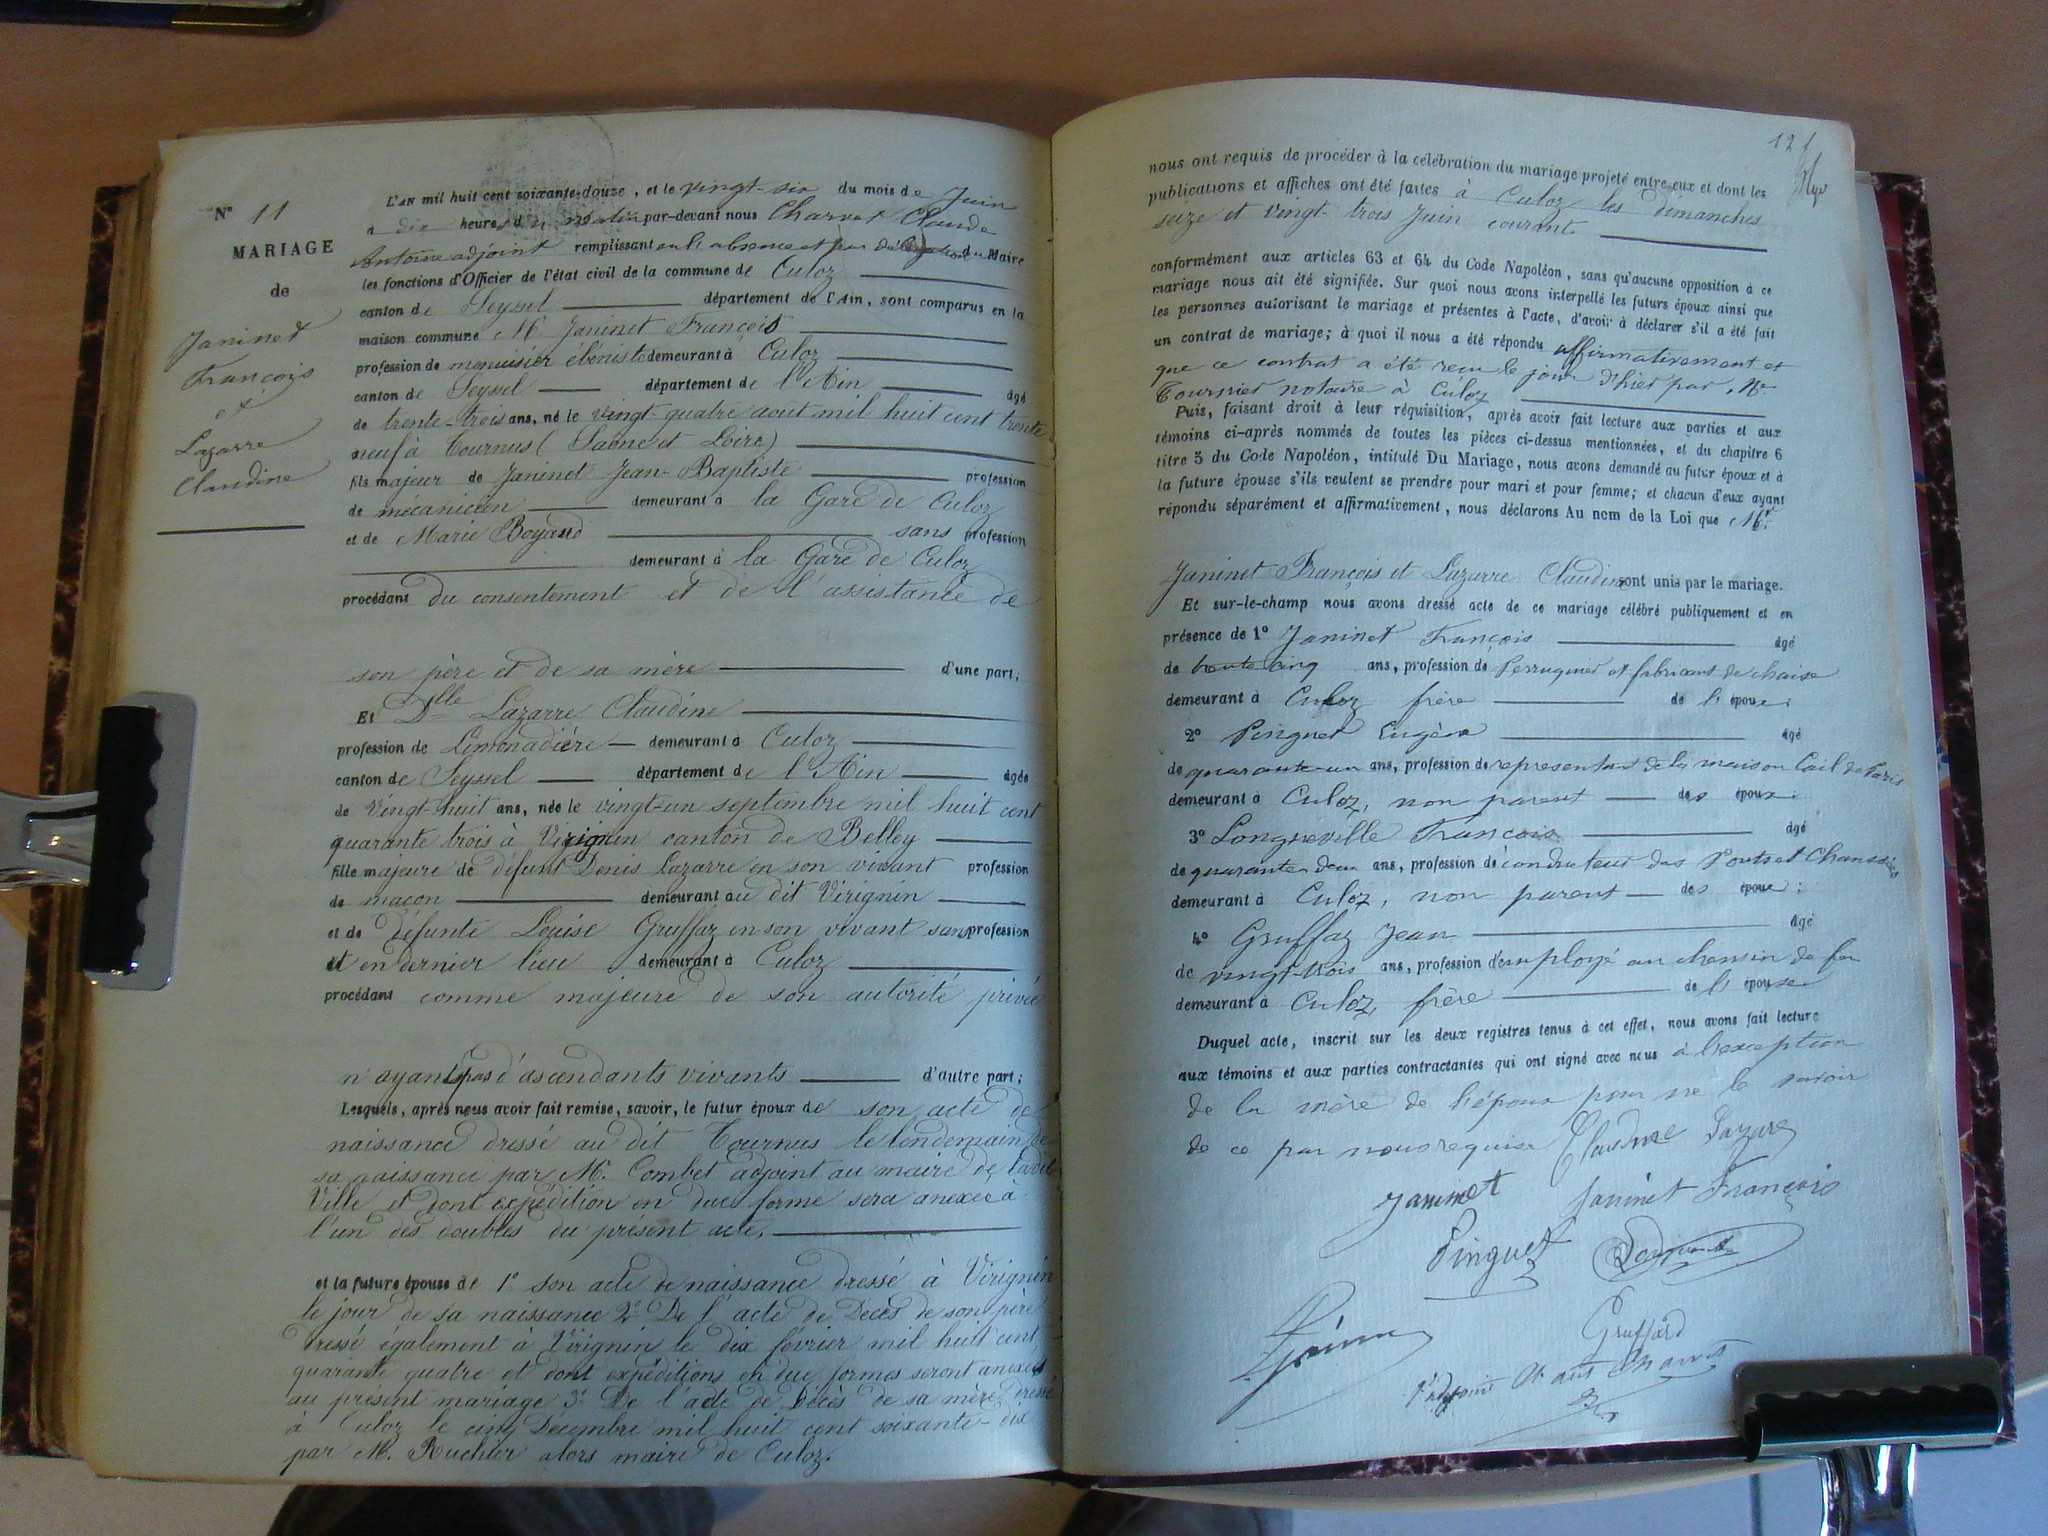 N° 11
MARIAGE
de
Janinet
François
et
Lazarre
Claudine
L'AN mil huit cent soixante-douze, et le vingt-six du mois de Juin
à dix heures du matin par-devant nous Charvet Claude
Antoine adjoint remplissant en l'absence et par délégation du Maire
les fonctions d'Officier de l'état civil de la commune de Culoz
canton de Seyssel département de l'Ain, sont comparus en la
maison commune M. Janinet François
profession de menuisier ébéniste demeurant à Culoz
canton de Seyssel département de l'Ain âgé
de trente-trois ans, né le vingt-quatre août mil huit cent trente
neuf à Tournus (Saône et Loire)
fils majeur de Janinet Jean-Baptiste profession
de mécanicien demeurant à la Gare de Culoz
et de Marie Boyaud sans profession
demeurant à la Gare de Culoz
procédant du consentement et de l'assistance de
son père et de sa mère d'une part;
Et Dlle Lazarre Claudine
profession de Limonadière demeurant à Culoz
canton de Seyssel département de l'Ain âgée
de vingt-huit ans, née le vingt-un septembre mil huit cent
quarante trois à Virignin canton de Belley
fille majeure de défunt Denis Lazarre en son vivant profession
de maçon demeurant au dit Virignin
et de défunte Louise Gruffaz en son vivant sans profession
et en dernier lieu demeurant à Culoz
procédant comme majeure de son autorité privée
n'ayant pas d'ascendants vivants d'autre part;
Lesquels, après nous avoir fait remise, savoir, le futur époux de son acte de
naissance dressé au dit Tournus le lendemain de
sa naissance par M. Combet adjoint au maire de la dite
Ville et dont expédition en due forme sera anexée à
l'un des doubles du présent acte.
et la future épouse de 1° son acte de naissance dressé à Virignin
le jour de sa naissance 2° De l'acte de Décès de son père
dressé également à Virignin le dix février mil huit cent
quarante quatre et dont expéditions en due formes seront anexées
au présent mariage 3° De l'acte de Décès de sa mère dressé
à Culoz le cinq Décembre mil huit cent soixante-dix
par M. Ruchier alors maire de Culoz.
121
nous ont requis de procéder à la célébration du mariage projeté entre eux et dont les
publications et affiches ont été faites à Culoz les dimanches
seize et vingt trois Juin courant
conformément aux articles 63 et 64 du Code Napoléon, sans qu'aucune opposition à ce
mariage nous ait été signifiée. Sur quoi nous avons interpellé les futurs époux ainsi que
les personnes autorisant le mariage et présentes à l'acte, d'avoir à déclarer s'il a été fait
un contrat de mariage; à quoi il nous a été répondu affirmativement et
que ce contrat a été reçu le jour d'hier par Me
Tournier notaire à Culoz
Puis, faisant droit à leur réquisition, après avoir fait lecture aux parties et aux
témoins ci-après nommés de toutes les pièces ci-dessus mentionnées, et du chapitre 6
titre 5 du Code Napoléon, intitulé Du Mariage, nous avons demandé au futur époux et à
la future épouse s'ils veulent se prendre pour mari et pour femme; et chacun d'eux ayant
répondu séparément et affirmativement, nous déclarons Au nom de la Loi que Mr
Janinet François et Lazarre Claudine sont unis par le mariage.
Et sur-le-champ nous avons dressé acte de ce mariage célébré publiquement et en
présence de 1° Janinet François âgé
de trente cinq ans, profession de Perruquier et fabricant de chaise
demeurant à Culoz frère de l'époux;
2° Pinguet Eugène âgé
de quarante-un ans, profession de représentant de la maison Cail de Paris
demeurant à Culoz, non parent des époux;
3° Longueville François âgé
de quarante deux ans, profession de conducteur des Ponts et Chaussées
demeurant à Culoz, non parent des époux;
4° Gruffaz Jean âgé
de vingt-trois ans, profession d'employé au chemin de fer
demeurant à Culoz, frère de l'épouse
Duquel acte, inscrit sur les deux registres tenus à cet effet, nous avons fait lecture
aux témoins et aux parties contractantes qui ont signé avec nous à l'exception
de la mère de l'époux pour ne le savoir
de ce par nous requise Claudine Lazare
Janinet Janinet François
Pinguet
Gruffard
l'adjoint